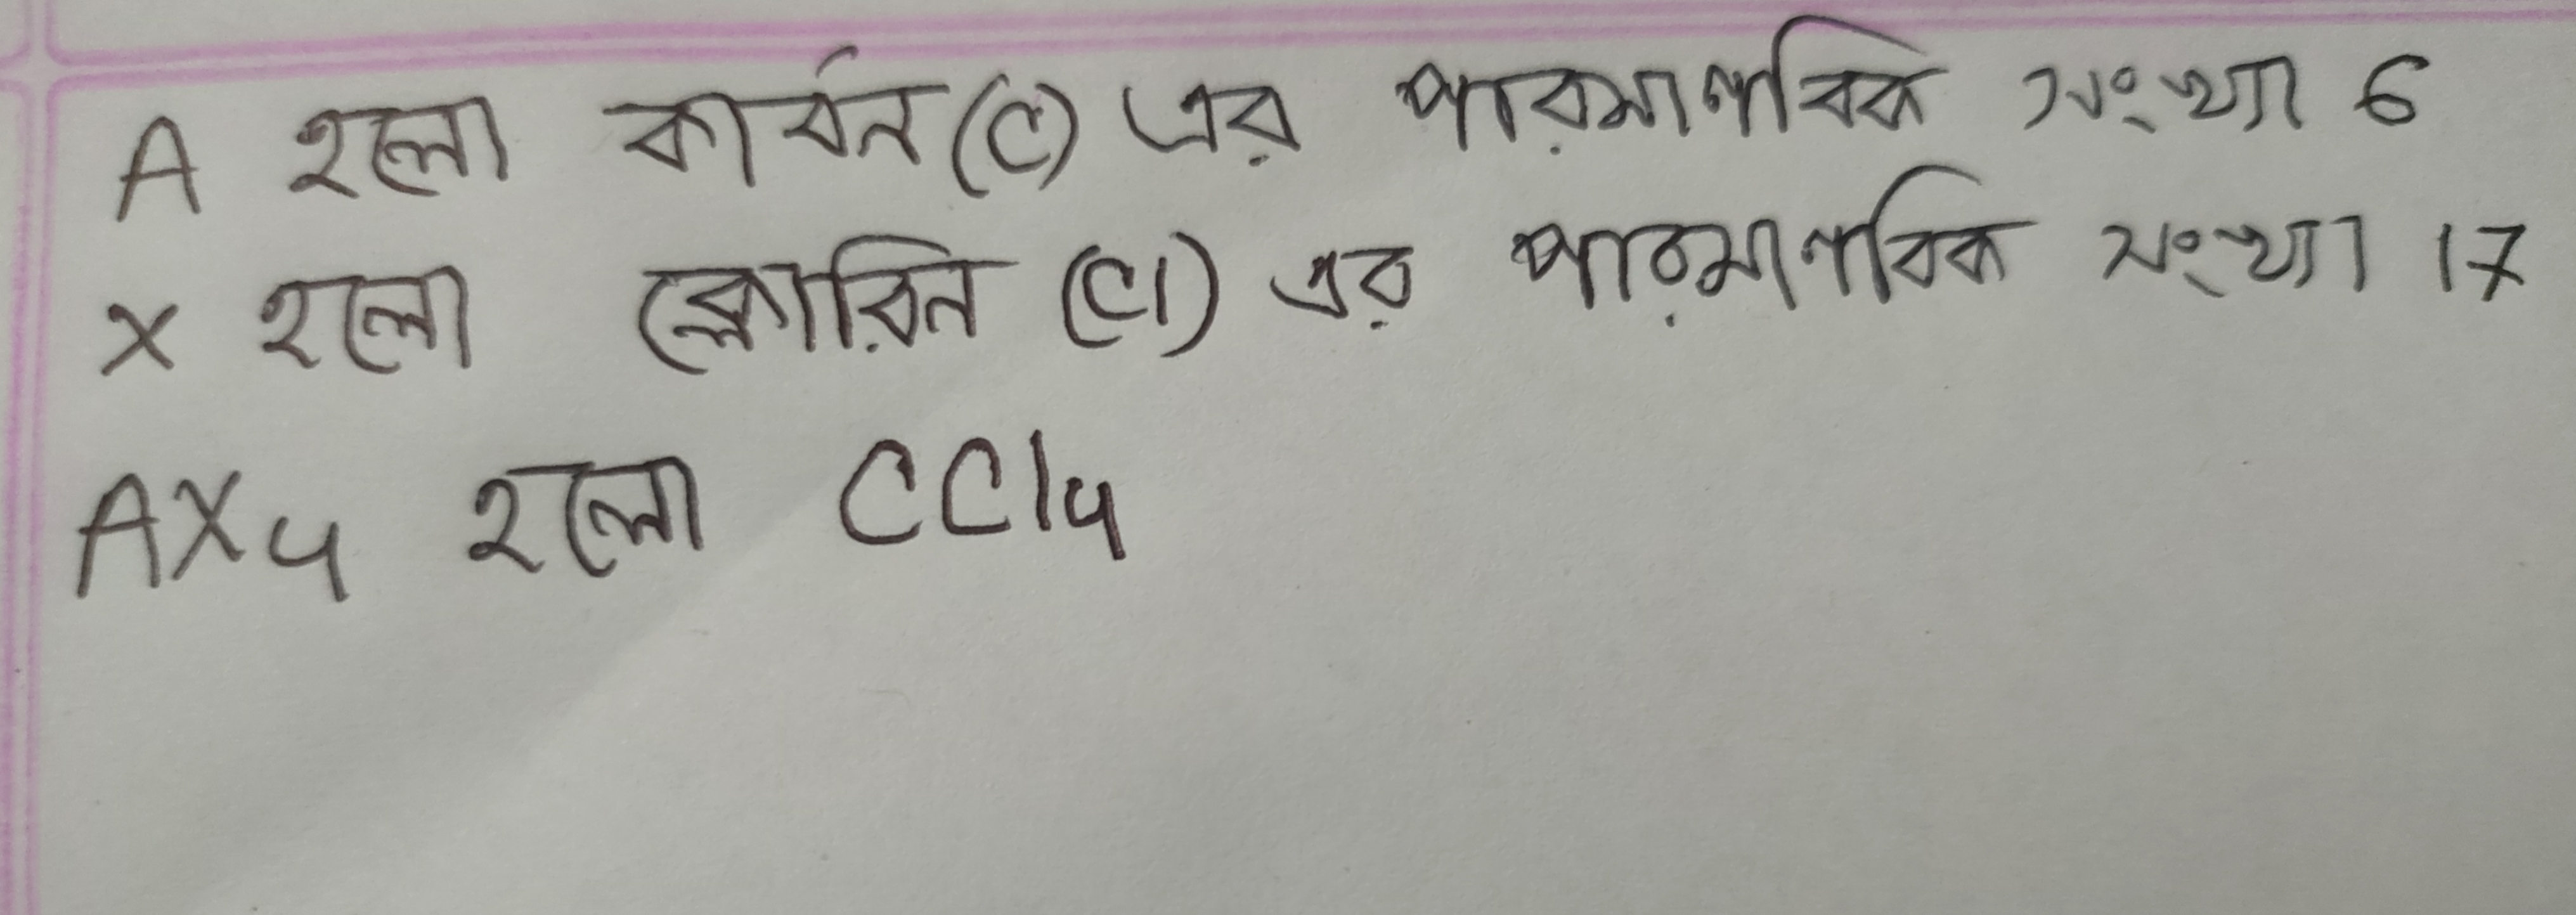 A হলো কার্বন (C) এর পারমাণবিক সংখ্যা 6
X হলো ক্লোরিন (Cl) এর পারমাণবিক সংখ্যা 17
AX4 হলো CCl4